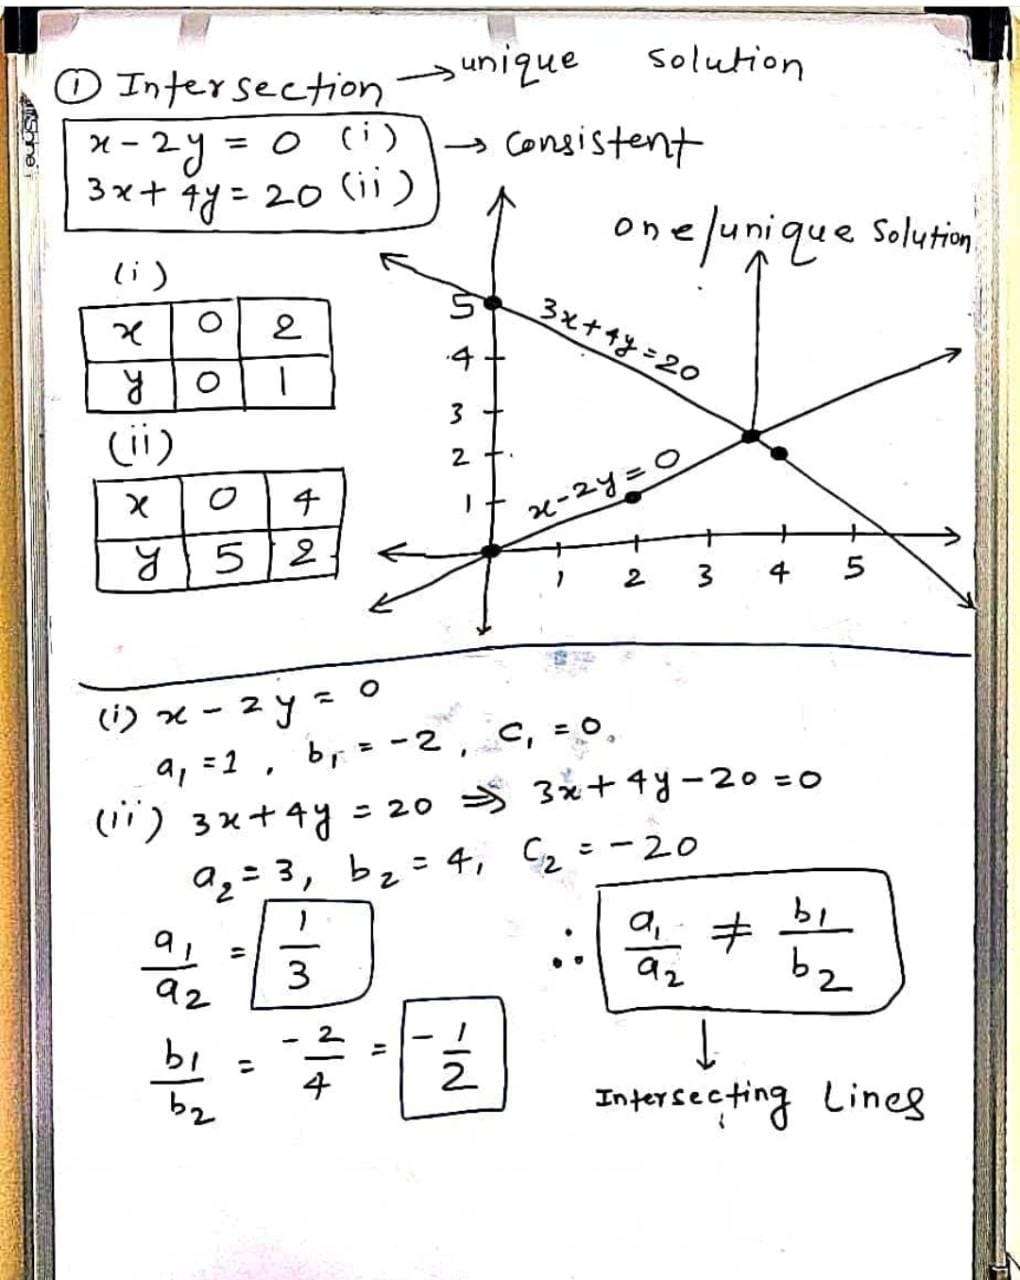 ① Intersection → unique solution
x - 2y = 0 (i) → consistent
3x + 4y = 20 (ii)
one/unique solution
(i)
x 0 2
y 0 1
(ii)
x 0 4
y 5 2
5
4
3
2
1
3x+4y=20
x-2y=0
1 2 3 4 5
(i) x - 2y = 0
a₁ = 1, b₁ = -2, c₁ = 0.
(ii) 3x + 4y = 20 ⇒ 3x + 4y - 20 = 0
a₂ = 3, b₂ = 4, C₂ = -20
a₁/a₂ = 1/3
∴ a₁/a₂ ≠ b₁/b₂
b₁/b₂ = -2/4 = -1/2
↓
Intersecting Lines